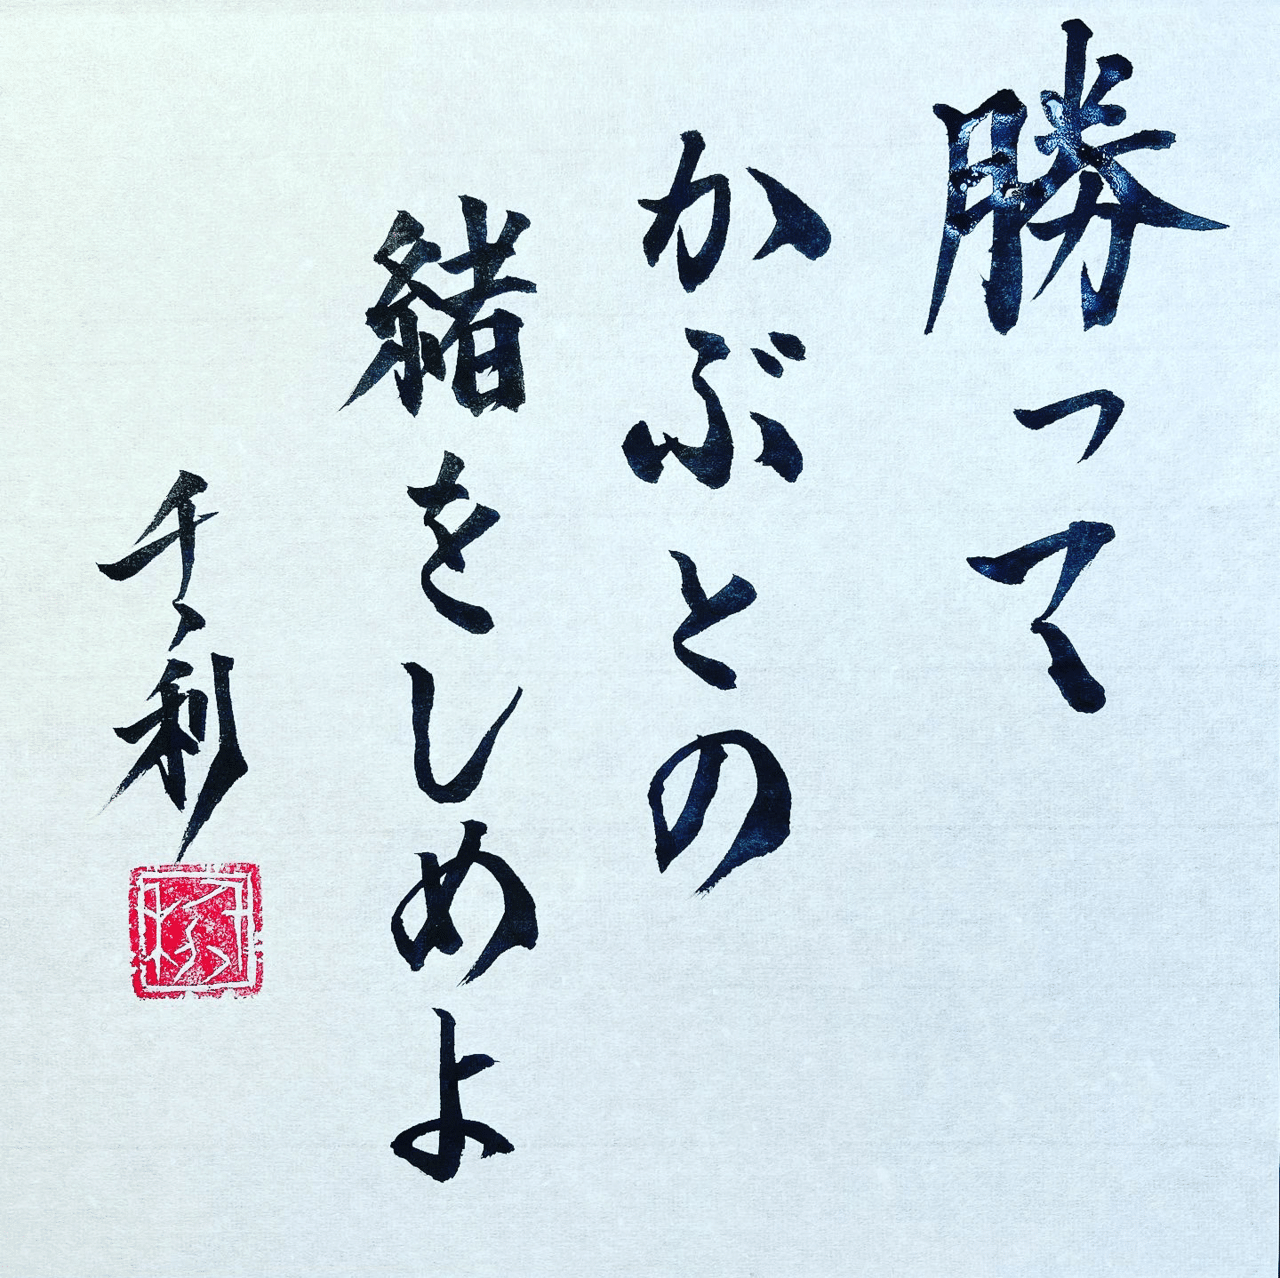 勝って
かぶとの
緒をしめよ
千利